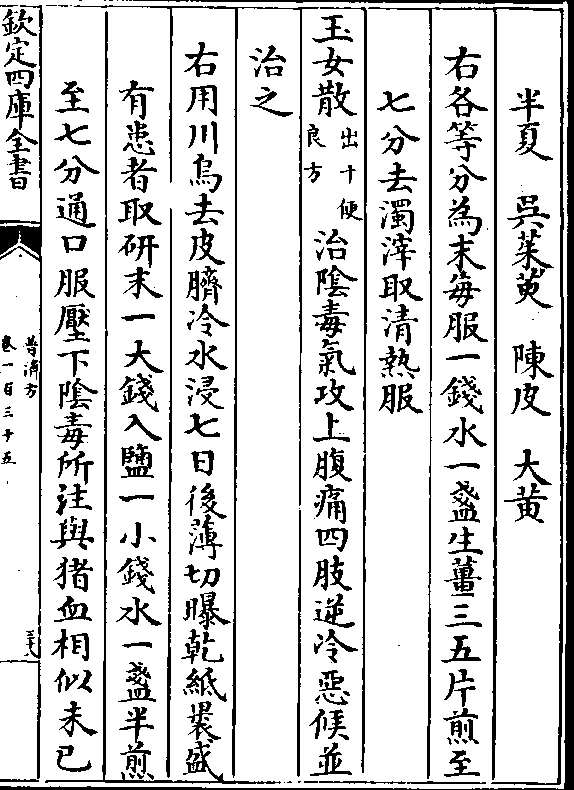 半夏　吳茱萸　陳皮　大黄
右各等分為末每服一錢水一盞生薑三五片煎至
七分去濁滓取清熱服
玉女散出十便良方治陰毒氣攻上腹痛四肢逆冷惡候並
治之
右用川烏去皮臍冷水浸七日後薄切曝乾紙褁盛
有患者取研末一大錢入鹽一小錢水一盞半煎
至七分通口服壓下陰毒所注與猪血相似未已
欽定四庫全書
普濟方
卷一百三十五